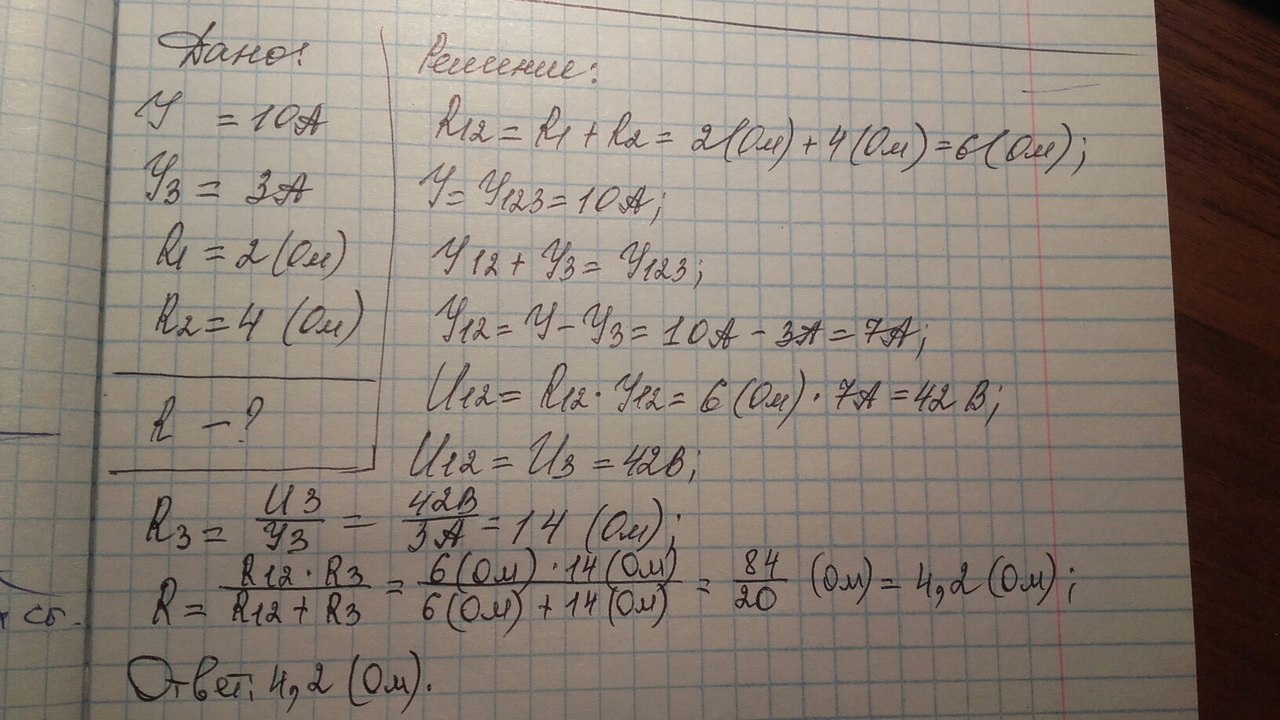 Дано:
У = 10А
У3 = 3А
R1 = 2 (Ом)
R2 = 4 (Ом)
R - ?
Решение:
R12 = R1 + R2 = 2(Ом) + 4(Ом) = 6(Ом);
У = У123 = 10А;
У12 + У3 = У123;
У12 = У - У3 = 10А - 3А = 7А;
U12 = R12 · У12 = 6(Ом) · 7А = 42В;
U12 = U3 = 42В;
R3 = U3/У3 = 42В/3А = 14 (Ом);
R = R12 · R3/R12 + R3 = 6(Ом) · 14(Ом)/6(Ом) + 14(Ом) = 84/20 (Ом) = 4,2(Ом);
Ответ: 4,2 (Ом).